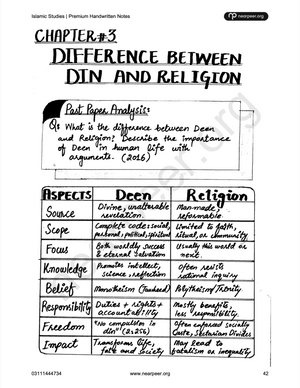 Islamic Studies | Premium Handwritten Notes
nearpeer.org
CHAPTER#3
DIFFERENCE BETWEEN
DIN AND RELIGION
Past Paper Analysis:
Q: What is the difference between Deen
and Religion? Describe the importance
of Deen in human life with
arguments. (2016)
ASPECTS Deen Religion
Source Divine, unalterable revelation. Man-made, reformable.
Scope Complete code: social, personal, political, spiritual Limited to faith, ritual, or community.
Focus Both worldly success & eternal salvation Usually this world or next.
Knowledge Promotes intellect, science, reflection Often resists rational inquiry
Belief Monotheism (Tawheed) Polytheism/Trinity
Responsibility Duties + rights + accountability Mostly benefits, less responsibility.
Freedom "No compulsion in din" (2:256) Often enforced socially Caste, Sectarian Divides
Impact Transforms life, faith and society May lead to fatalism or inequality
03111444734 www.nearpeer.org 42